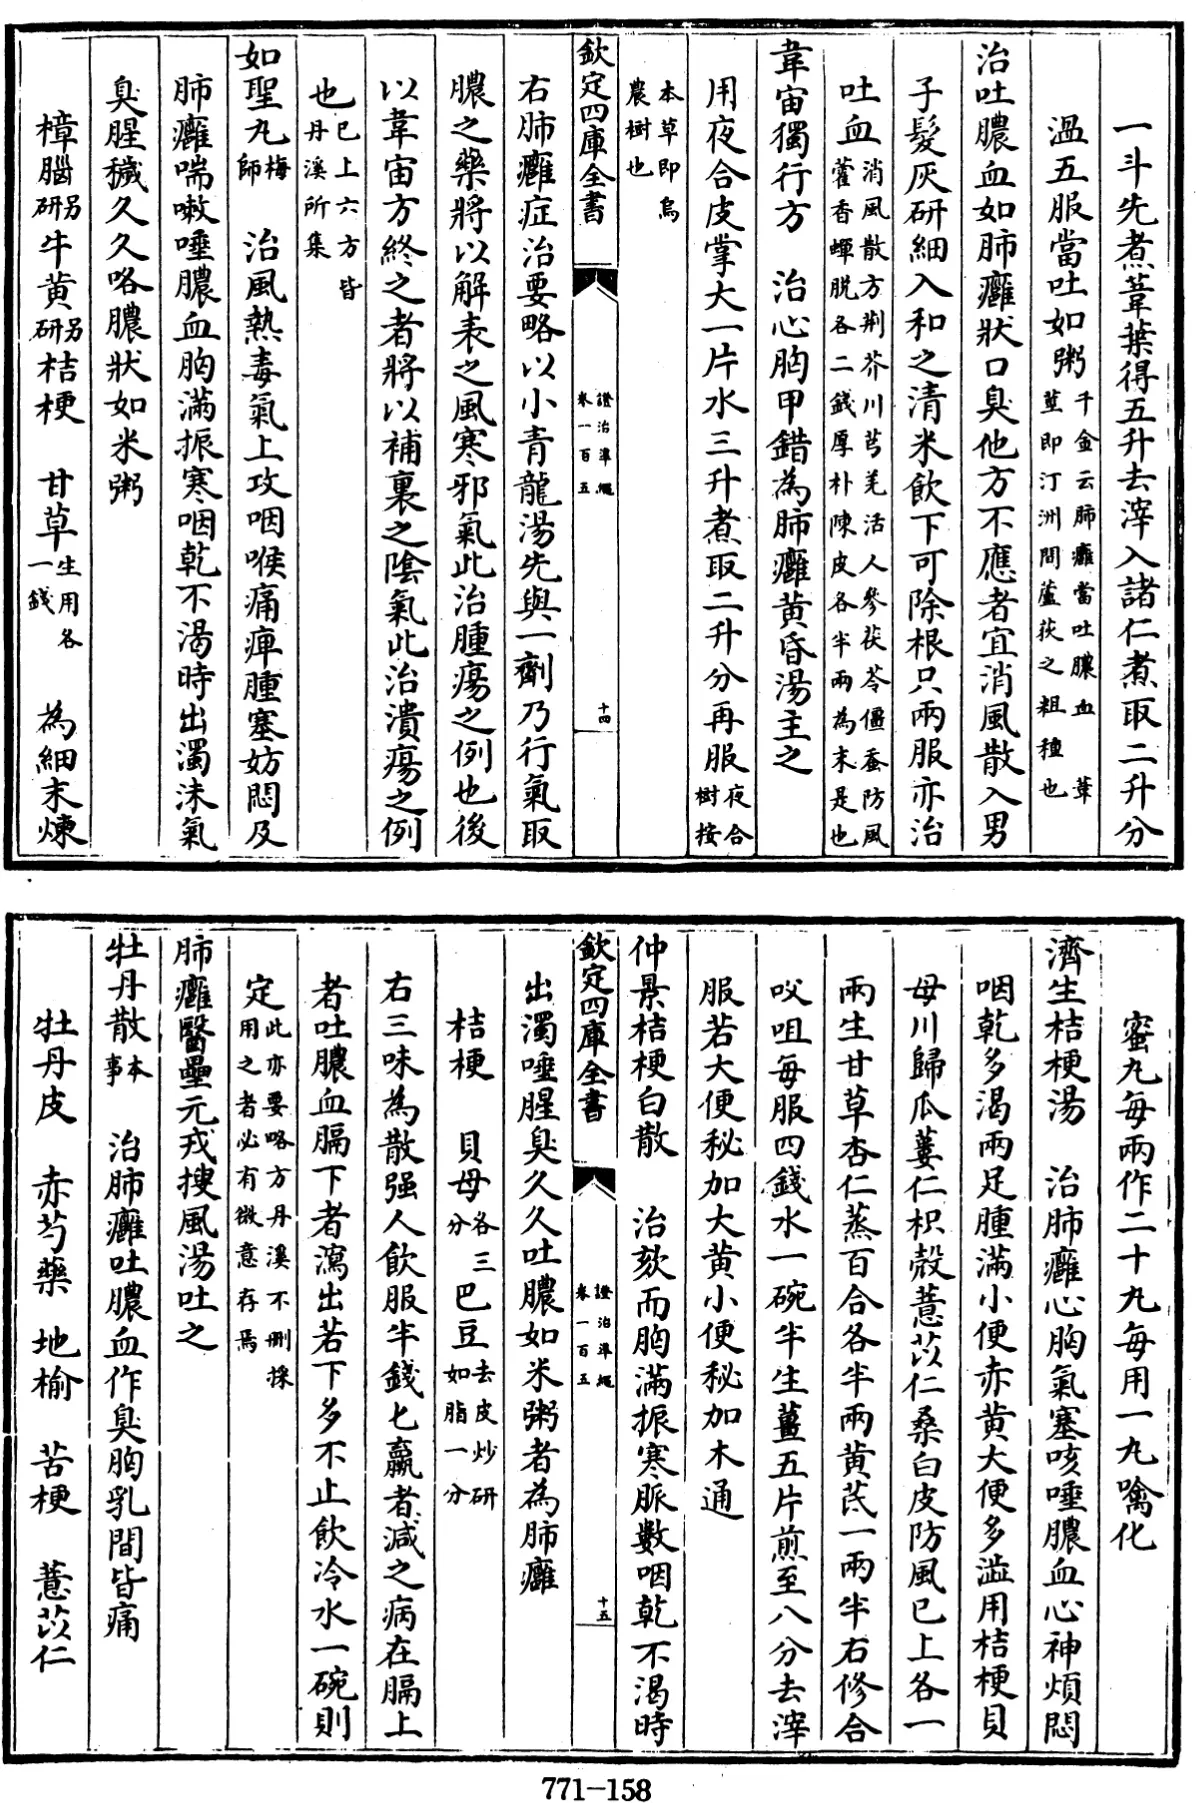 一斗先煮葦葉得五升去滓入諸仁煮取二升分
溫五服當吐如粥千金云肺癰當吐膿血　葦莖即汀洲間蘆荻之粗種也
治吐膿血如肺癰狀口臭他方不應者宜消風散入男
子髮灰研細入和之清米飲下可除根只兩服亦治
吐血消風散方荆芥川芎羌活人參茯苓僵蚕防風藿香蟬脱各二錢厚朴陳皮各半兩為末是也
韋宙獨行方　治心胸甲錯為肺癰黄昏湯主之
用夜合皮掌大一片水三升煮取二升分再服夜合樹按
本草即烏農樹也
欽定四庫全書
證治準繩
卷一百五
十四
右肺癰症治要略以小青龍湯先與一劑乃行氣取
膿之藥將以解表之風寒邪氣此治腫瘍之例也後
以韋宙方終之者將以補裏之陰氣此治潰瘍之例
也已上六方皆丹溪所集
如聖丸梅師　治風熱毒氣上攻咽喉痛痺腫塞妨悶及
肺癰喘嗽唾膿血胸滿振寒咽乾不渴時出濁沫氣
臭腥穢久久咯膿狀如米粥
樟腦另研牛黄另研桔梗　甘草生用各一錢　為細末煉
蜜丸每兩作二十丸每用一丸噙化
濟生桔梗湯　治肺癰心胸氣塞咳唾膿血心神煩悶
咽乾多渴兩足腫滿小便赤黄大便多澁用桔梗貝
母川歸瓜蔞仁枳殼薏苡仁桑白皮防風已上各一
兩生甘草杏仁蒸百合各半兩黄芪一兩半右修合
㕮咀每服四錢水一碗半生薑五片煎至八分去滓
服若大便秘加大黄小便秘加木通
仲景桔梗白散　治欬而胸滿振寒脈數咽乾不渴時
欽定四庫全書
證治準繩
卷一百五
十五
出濁唾腥臭久久吐膿如米粥者為肺癰
桔梗　貝母各三分　巴豆去皮炒研如脂一分
右三味為散强人飲服半錢匕羸者減之病在膈上
者吐膿血膈下者瀉出若下多不止飲冷水一碗則
定此亦要略方丹溪不刪採用之者必有微意存焉
肺癰醫壘元戎搜風湯吐之
牡丹散本事　治肺癰吐膿血作臭胸乳間皆痛
牡丹皮　赤芍藥　地榆　苦梗　薏苡仁
771–158